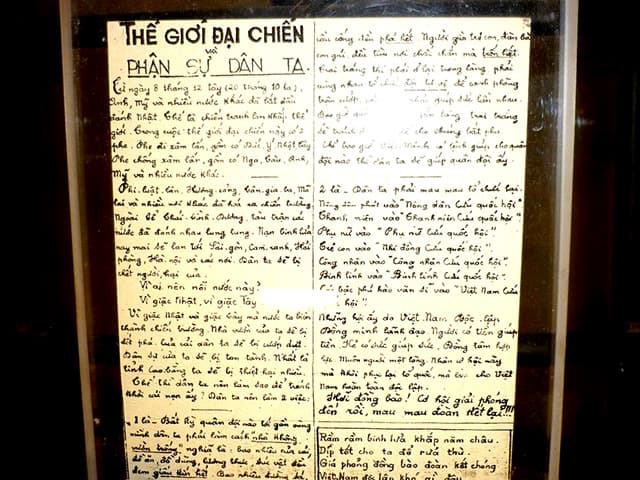 THẾ GIỚI ĐẠI CHIẾN
và
PHẬN SỰ DÂN TA.
Từ ngày 8 tháng 12 tây (20 tháng 10 ta),
Anh, Mỹ và nhiều nước khác đã bắt đầu
đánh Nhật. Thế là chiến tranh lan khắp thế
giới. Trong cuộc thế giới đại chiến này có 2
phe. Phe đi xâm lấn, gồm có Đức, Ý, Nhật, Tây
Phe chống xâm lấn, gồm có Nga, Tàu, Anh,
Mỹ và nhiều nước khác.
Phi-luật-tân, Hương-cảng, Tân-gia-ba, Mã
lai và nhiều nơi khác đã hoá ra chiến trường.
Ngoài bể Thái-bình-Dương, tàu trận các
nước đã đánh nhau lung tung. Nạn binh lửa
nay mai sẽ lan tới Sài-gòn, Cam-ranh, Hải
phòng, Hà-nội và các nơi. Dân ta sẽ bị
chết người, hại của.
Vì ai nên nỗi nước này?
Vì giặc Nhật, vì giặc Tây
Vì giặc Nhật và giặc Tây mà nước ta biến
thành chiến trường. Nhà vườn của ta sẽ bị
đốt phá. Của cải dân ta sẽ bị cướp dựt.
Dân sự của ta sẽ bị tan tành. Nhất là
tỉnh Cao-bằng ta sẽ bị thiệt hại nhiều.
Thế thì dân ta nên làm sao để tránh
khỏi cái nạn ấy? Dân ta nên làm 2 việc:
1 là - Bất kỳ quân đội nào tới gần vùng
mình dân ta phải làm cách "nhà không
vườn trống" nghĩa là: bao nhiêu của cải,
đồ ăn, đồ dùng, lương thực, súc vật đều
đem giấu hết.
cầu cống đều phá hết. Người già trẻ con, đàn bà
con gái, đều tìm nơi chắc chắn mà trốn hết.
Trai tráng thì phải ở lại trong làng, phải
cùng nhau tổ chức đội tự vệ để canh phòng
trộm cướp, giúp sức lẫn nhau.
Bao giờ
để tránh cho chúng bắt phu.
Chỉ bao giờ Việt Minh có lệnh giúp cho quân
đội nào thì dân ta sẽ giúp quân đội ấy.
2 là - Dân ta phải mau mau tổ chức lại.
Nông dân phải vào "Nông dân Cứu quốc hội"
Thanh niên vào "Thanh niên Cứu quốc hội"
Phụ nữ vào "Phụ nữ Cứu quốc hội".
Trẻ con vào "Nhi đồng Cứu quốc hội".
Công nhân vào "Công nhân Cứu quốc hội".
Binh lính vào "Binh lính Cứu quốc hội".
Các bậc phú hào văn sĩ vào "Việt Nam Cứu
hội".
Những hội ấy do Việt Nam Độc-lập
Đồng minh lãnh đạo. Người có tiền giúp
tiền. Kẻ có sức giúp sức. Đồng tâm hợp
lực. Muôn người một lòng. Nhân cơ hội này
mà khôi phục lại tổ quốc, mà làm cho Việt
Nam hoàn toàn độc lập.
Hỡi đồng bào! Cơ hội giải phóng
đến rồi, mau mau đoàn kết lại!!!
Rầm rầm binh lửa khắp năm châu.
Dịp tốt cho ta để rửa thù.
Giải phóng đồng bào đoàn kết chóng
Việt Nam độc lập